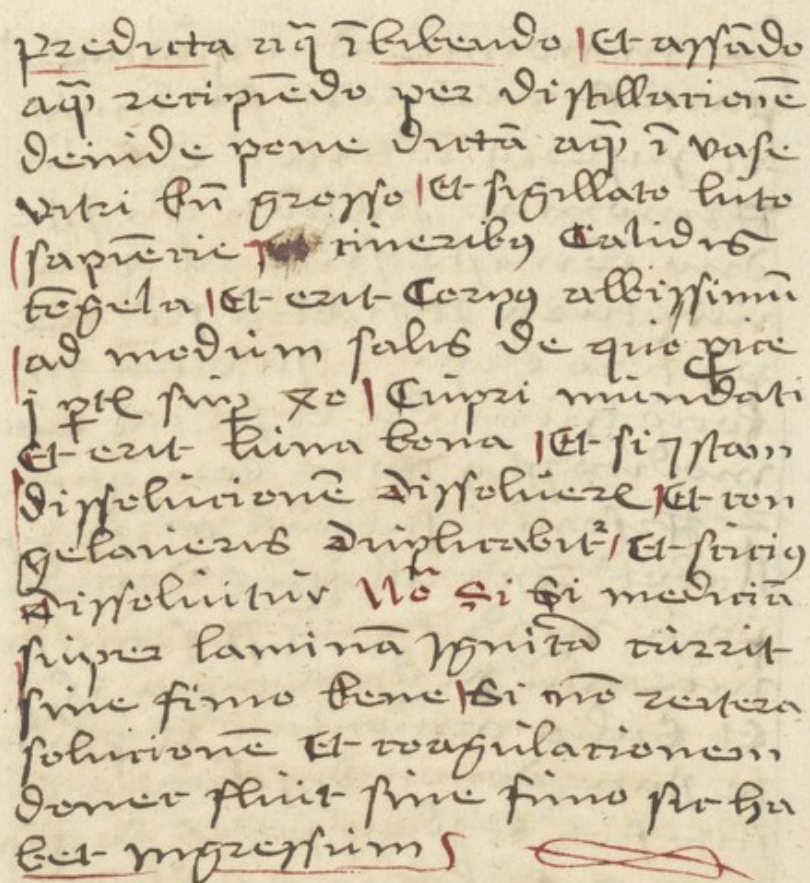 predicta aq̄ ī bibendo Et assādo
aq̄ recipiēdo per distillacionē
deinde pone dictā aq̄ ī vase
vitri bn̄ grosso Et sigillato luto
sapiēcie cineribꝫ Calidis
cōgela Et erit Corpꝰ albissimū
ad modum salis de quo proice
j ptē suꝑ xo Cupri mundati
Et erit luna bona Et si istam
dissolucionē dissoluere Et con
gelaueris duplicabitr Et sciciꝰ
dissoluitur No Si Si mediciā
super laminā ignitā currit
sine fimo bene Si nō reitera
solucionē Et coagulacionem
donec fluit sine fimo sic ha
bet ingressum